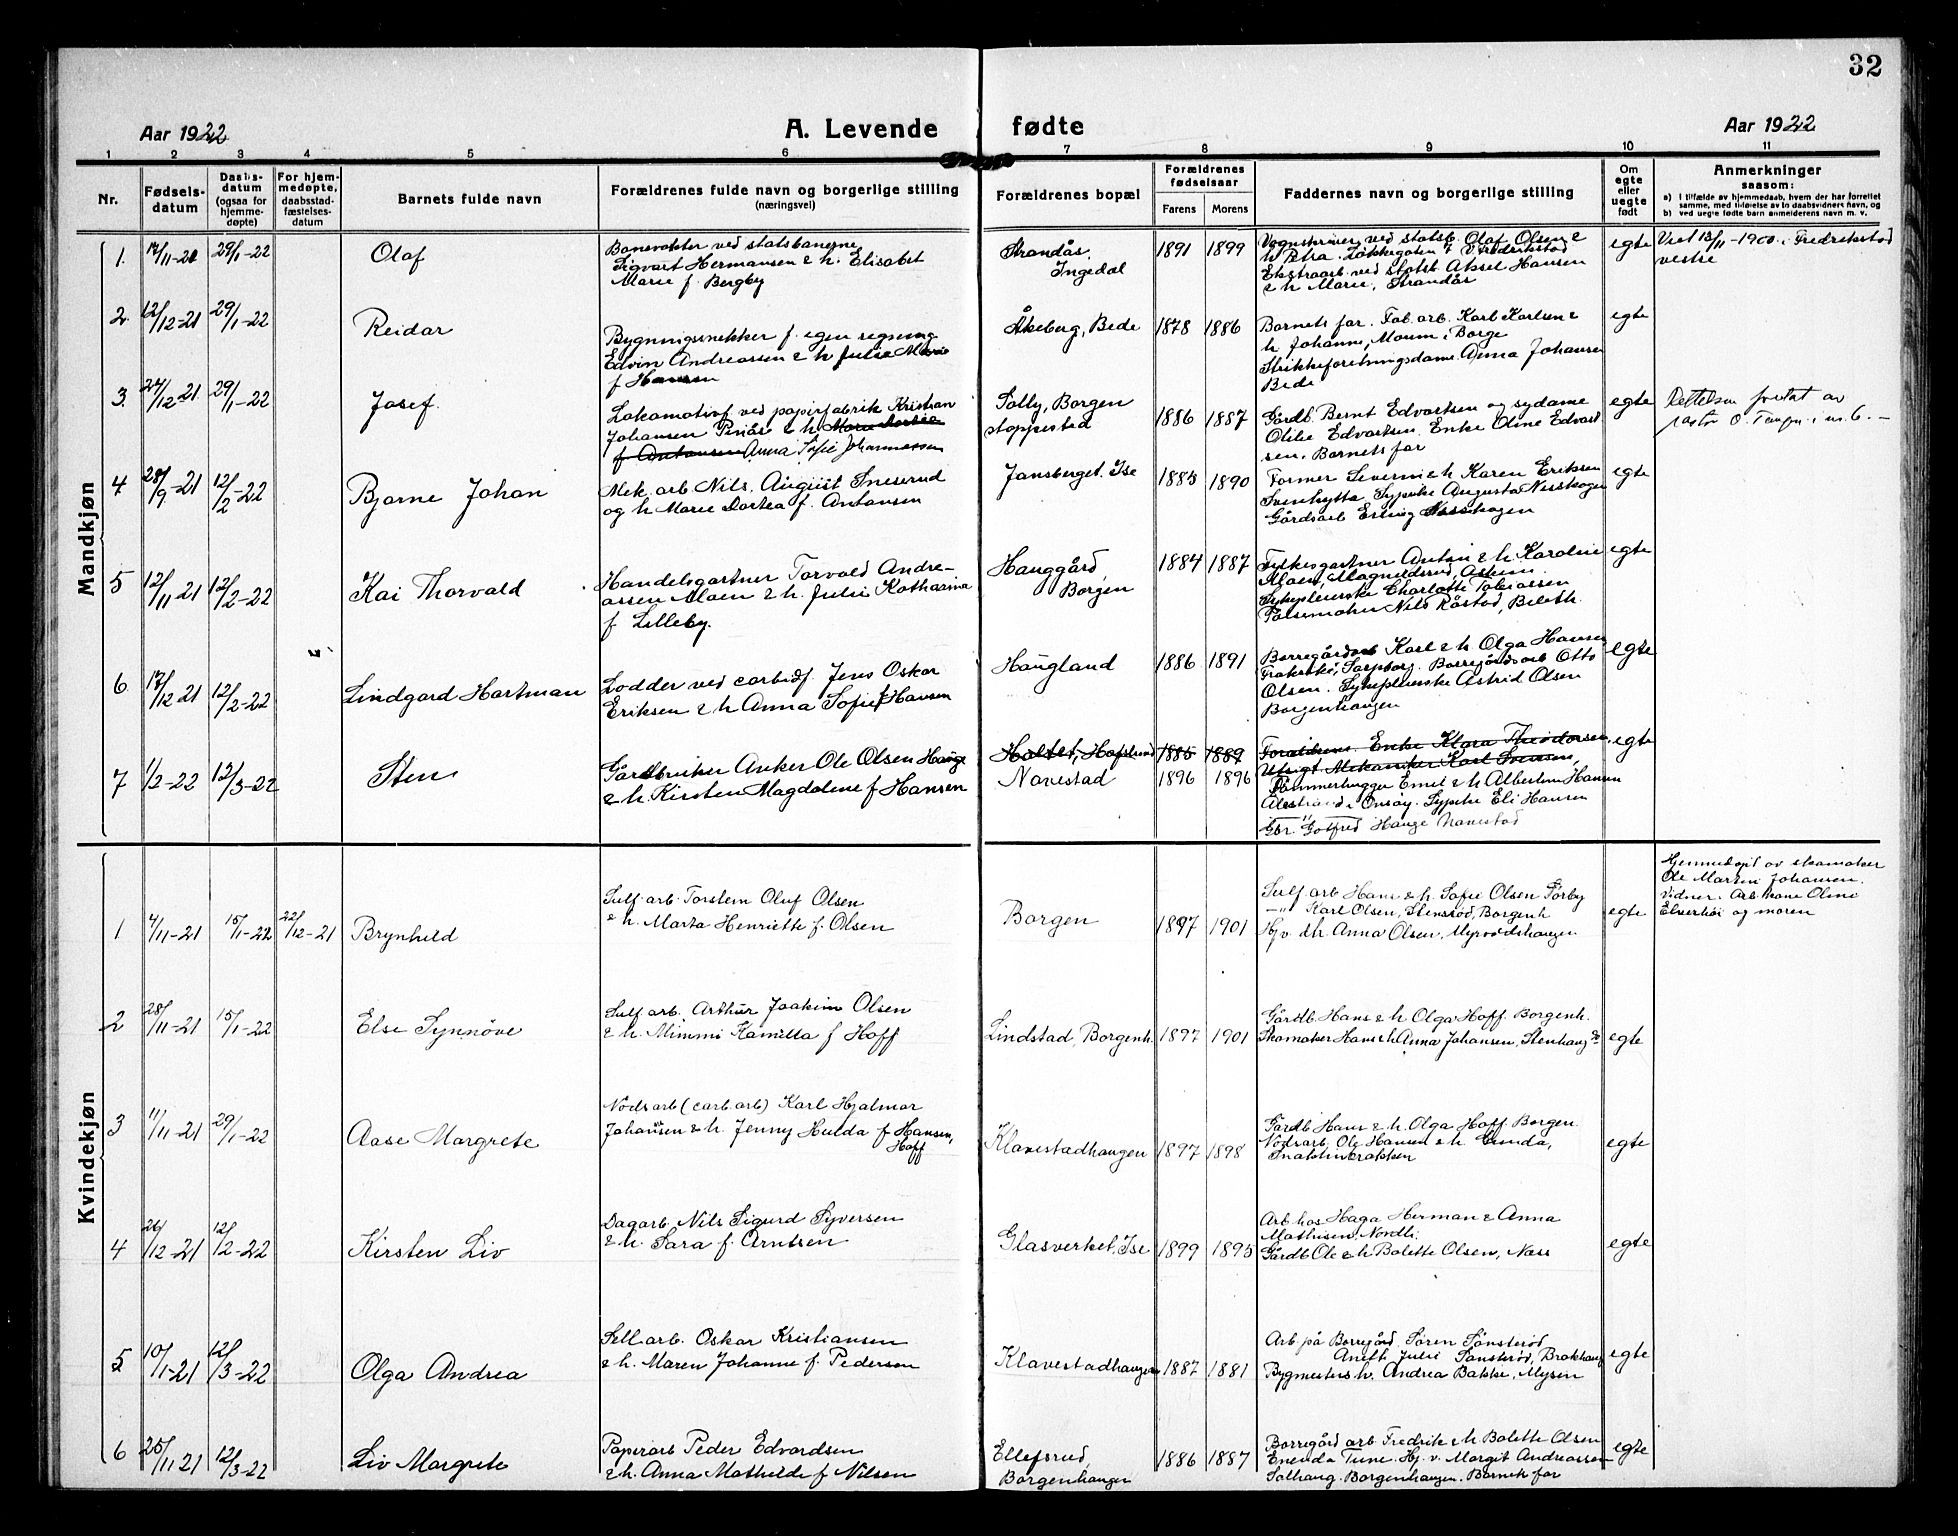 32
Aar 1922
A. Levende fødte
Aar 1922
1 2 3 4 5 6 7 8 9 10 11
Nr.
Fødselsdatum
Daabsdatum (ogsaa for hjemmedøpte)
For hjemmedøpte, daabsstadfæstelsesdatum
Barnets fulde navn
Forældrenes fulde navn og borgerlige stilling
(næringsvei)
Forældrenes bopæl
Forældrenes fødselsaar
Farens Morens
Faddernes navn og borgerlige stilling
Om egte eller uegte født
Anmerkninger
saasom:
a) i tilfælde av hjemmedaab, hvem der har forrettet
samme, med tilføielse av to daabsvidners navn, og
b) ved uegte fødte barn anmelderens navn m. v.
Mandkjøn
1. 17/11-21 29/1-22 Olaf
Banevokter ved statsbanerne
Sigvart Hermansen & h. Elisabet
Marie f. Bergby
Strandås,
Ingedal
1891 1899
Vognskriver ved statsb. Olaf Olsen &
h. Petra. Løkkegaten 7 V. Fredrikstad
Ekstraarb. ved statsb. Aksel Hansen
& h Marie, Strandås
egte
Viet 13/11-1900 i Fredrikstad
vestre
2. 12/12-21 29/1-22 Reidar
Bygningssnekker f. egen regning
Edvin Andreassen & h Julie Marie
f Hansen
Åkeberg, Bede
1878 1886
Barnets far. Fab. arb. Karl Karlsen &
h Johanne, Moum i Borge
Strikkeforretningsdame Anna Johansen
Bede
egte
3. 27/12 21 29/1-22 Josef
Lokomotivf ved papirfabrik Kristian
Johansen & h Marie Dortea
f Antonsen Anna Sofie Johannessen
Solly, Borgen
stoppested
1886 1887
Gårdb. Bernt Edvartsen og sydame
Otilie Edvartsen. Enke Oline Edvart
sen, Barnets far
egte
4 28/9-21 12/2-22 Bjarne Johan
Mek. arb Nils August Sneserud
og h Marie Dortea f. Antonsen
Jansberget. Ise
1883 1890
Former Severin & h Karen Eriksen
Svenhytta Sypike Augusta Nesskogen
Gårdsarb Erling
egte
5 12/11 21 12/2-22 Kai Thorvald
Handelsgartner Torvald Andre-
assen Moen & h. Julie Katharina
f Lilleby.
Hauggård
Borgen
1884 1887
Fylkesgartner Anton & h. Karoline
Moen, Magnildsrud, Askim
Sykepleierske Charlotte Tobiassen
Nils Råstad,
egte
6 17/12 21 12/2-22 Lindgard Hartman
Lodder ved carbidf. Jens Oskar
Eriksen & h Anna Sofie f Hansen
Haugland
1886 1891
Borregårdarb Karl & h Olga Hansen
Sarpborg. Borregårdsarb Otto
Olsen. Sykepleierske Astrid Olsen
Borgenhaugen
egte
7 1/2-22 12/3-22 Sten
Gårdbruker Anker Ole Olsen Hauge
& h. Kirsten Magdalene f Hansen
Holtet, Hafslund 1885 1889
Navestad 1896 1896
Forældrene. Enke Klara Theodorsen,
Mekaniker Karl Svensen,
Tømmerhugger Emil & h Albertine Hansen
i Onsøy. Sypike Eli Hansen
Gbr. Gotfred Hauge Navestad
egte
Kvindekjøn
1 7/11-21 15/1-22 22/12-21 Brynhild
Sulf. arb. Torstein Oluf Olsen
& h. Marta Henriette f. Olsen
Borgen
1897 1901
Sulf arb Hans & h. Sofie Olsen Torby
—"— Karl Olsen, Stensrød, Borgenh.
Hj. v. dh. Anna Olsen, Myrvoldshaugen
egte
Hjemmedøpt av skomaker
Ole Martin Johansen.
Vidner: Arb. kone Oline
og moren
2 28/11-21 15/1-22 Else Synnöve
Sulf arb. Arthur Joakim Olsen
& h. Mimmi Kamilla f Hoff
Lindstad, Borgenh.
1897 1901
Gårdb Hans & h Olga Hoff. Borgenh.
Skomaker Hans & h Anna Johansen, Stenhaug
egte
3 11/11-21 29/1-22 Aase Margrete
Nodsarb (carb. arb) Karl Hjalmar
Johansen & h. Jenny Hulda f Hansen,
Hoff
Klavestadhaugen
1897 1898
Gårdb Hans & h. Olga Hoff Borgen
Nodsarb. Ole Hansen & h Gunda,
egte
4 26/12-21 12/2-22 Kirsten Liv
Dagarb. Nils Sigurd Syversen
& h. Sara f. Arntsen
Glasverket, Ise
1899 1895
Arb hos Haga Herman & Anna
Mathisen, Nordli.
Gårdb Ole & h Bolette Olsen, Næss
egte
5 10/1-21 12/3-22 Olga Andrea
Sell. arb. Oskar Kristiansen
& h. Maren Johanne f. Pedersen
Klavestadhaugen
1887 1881
Arb på Borregård Søren Sønsterød,
Julie Sønsterød, Brakhaug
Bygmesters h. Andrea Bakke, Mysen
egte
6 25/11 21 12/3-22 Liv Margrete
Papirarb Peder Edvardsen
& h. Anna Mathilde f Nilsen
Ellefsrud,
Borgenhaugen
1886 1887
Borregård arb Fredrik & h Bolette Olsen
Enenda Tune. Hj. v. Margit Andreassen
Solhaug. Borgenhaugen. Barnets far
egte